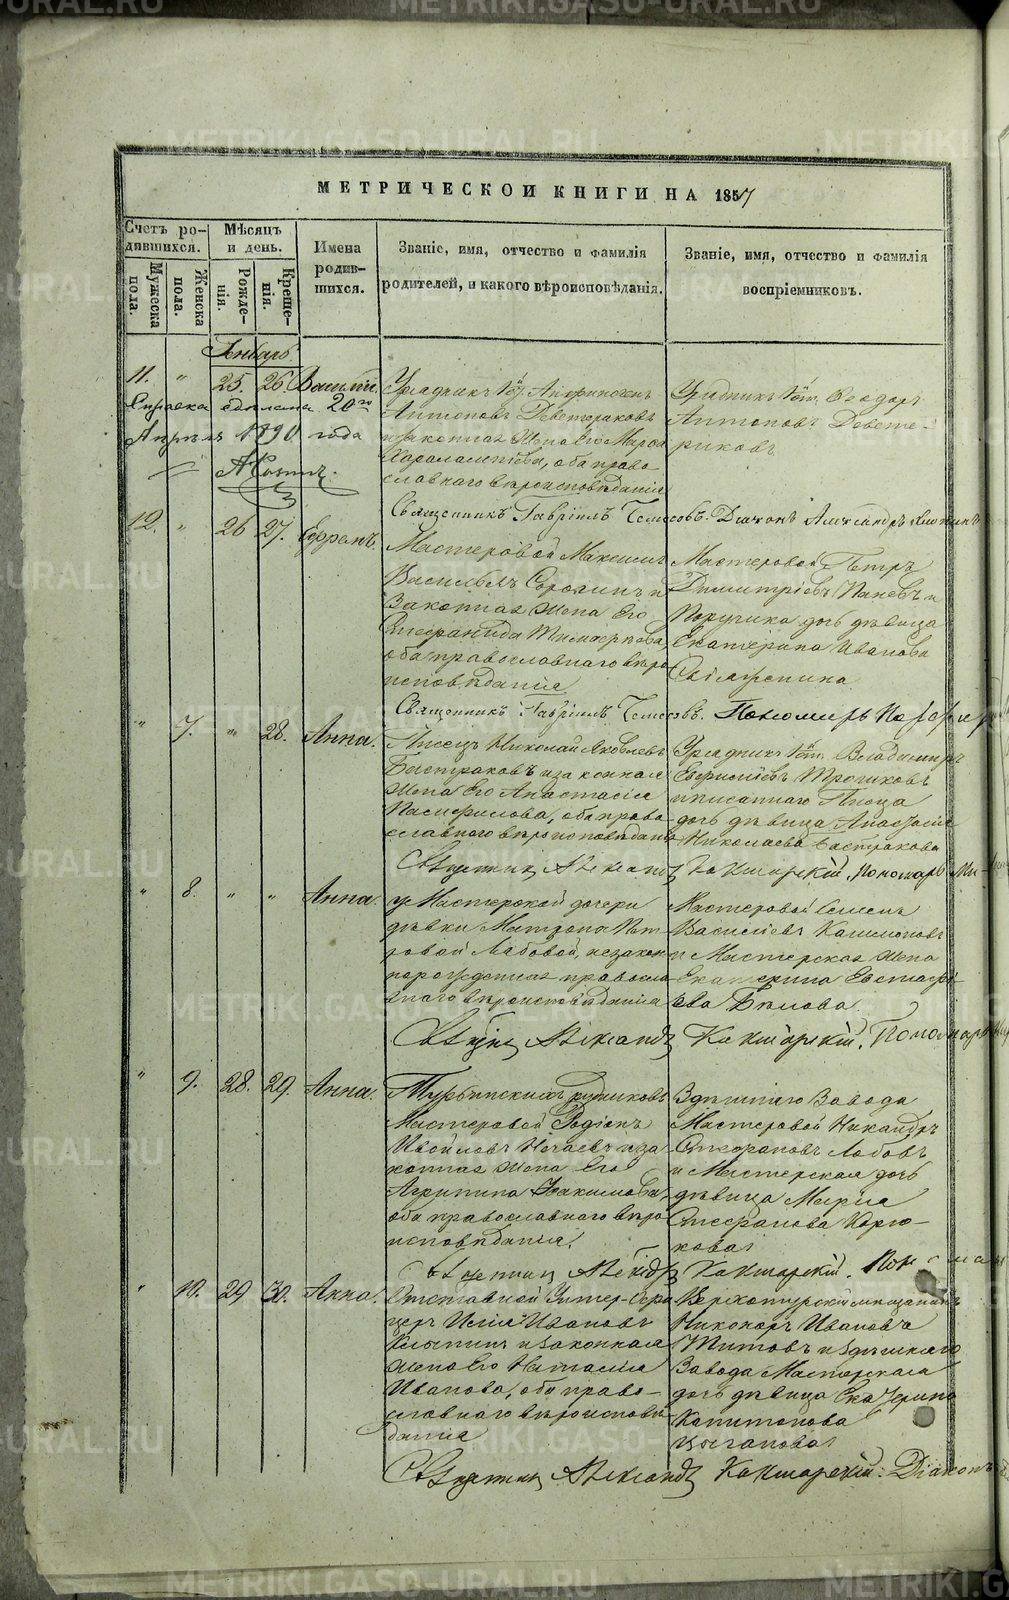 METRIKI.GASO-URAL.RU
МЕТРИЧЕСКОЙ КНИГИ НА 1857
Счетъ родившихся.
Мужеска пола.
Женска пола.
Мѣсяцъ и день.
Рожденія.
Крещенія.
Имена родившихся.
Званіе, имя, отчество и фамилія
родителей, и какого вѣроисповѣданія.
Званіе, имя, отчество и фамилія
воспріемниковъ.
Январь.
11. " 25. 26. Василій.
Справка сдѣлана 20го
Апрѣля 1890 года
Урядникъ
Антоновъ Деветериковъ
и законная жена его Марѳа
Харалампіева, оба право-
славнаго вѣроисповѣданія
Урядникъ Ѳеодоръ
Антоновъ Девете-
риковъ
Священникъ Гавріилъ Діаконъ Александръ
12. " 26 27. Ефремъ.
Мастеровой Максимъ
Васильевъ Сорокинъ и
Законная жена его
Стефанида
оба православнаго вѣро-
исповѣданія
Мастеровой Петръ
Димитріевъ Паневъ и
Поручика дочь дѣвица
Екатерина Иванова
Священникъ Гавріилъ Пономарь
" 7. " 28. Анна.
Писецъ Николай Яковлевъ
Бастраковъ и законная
жена его Анастасія
оба право-
славнаго вѣроисповѣданія
Урядникъ Владиміръ
и писаннаго Писца
дочь дѣвица Анастасія
Николаева Бастракова
Священникъ Александръ Кокшарскій. Пономарь
" 8. " " Анна.
у Мастерской дочери
дѣвки Матроны Пет-
ровой Лабовой, незакон-
норожденная православ-
наго вѣроисповѣданія
Мастеровой Семенъ
Васильевъ
и Мастерская жена
Екатерина Евстафі-
ева Бѣлова
Священникъ Александръ Кокшарскій. Пономарь
" 9. 28. 29. Анна.
Турьинскихъ рудниковъ
Мастеровой Родіонъ
Нечаевъ и за-
конная жена его
Агрипина
оба православнаго вѣро-
исповѣданія.
Здѣшняго Завода
Мастеровой Никандръ
Стефановъ Лобовъ
и Мастерская дочь
дѣвица Марія
Стефанова Корю-
кова
Священникъ Александръ Кокшарскій. Пономарь
" 10. 29 30. Анна.
Отставной Унтер-Офи-
церъ Илія Ивановъ
и законная
жена его Наталія
Иванова, оба право-
славнаго вѣроисповѣ-
данія
Верхотурскій мѣщанинъ
Никоноръ Ивановъ
Титовъ и здѣшняго
Завода Мастерская
дочь дѣвица Екатерина
Капитонова
Цыганова
Священникъ Александръ Кокшарскій. Діаконъ